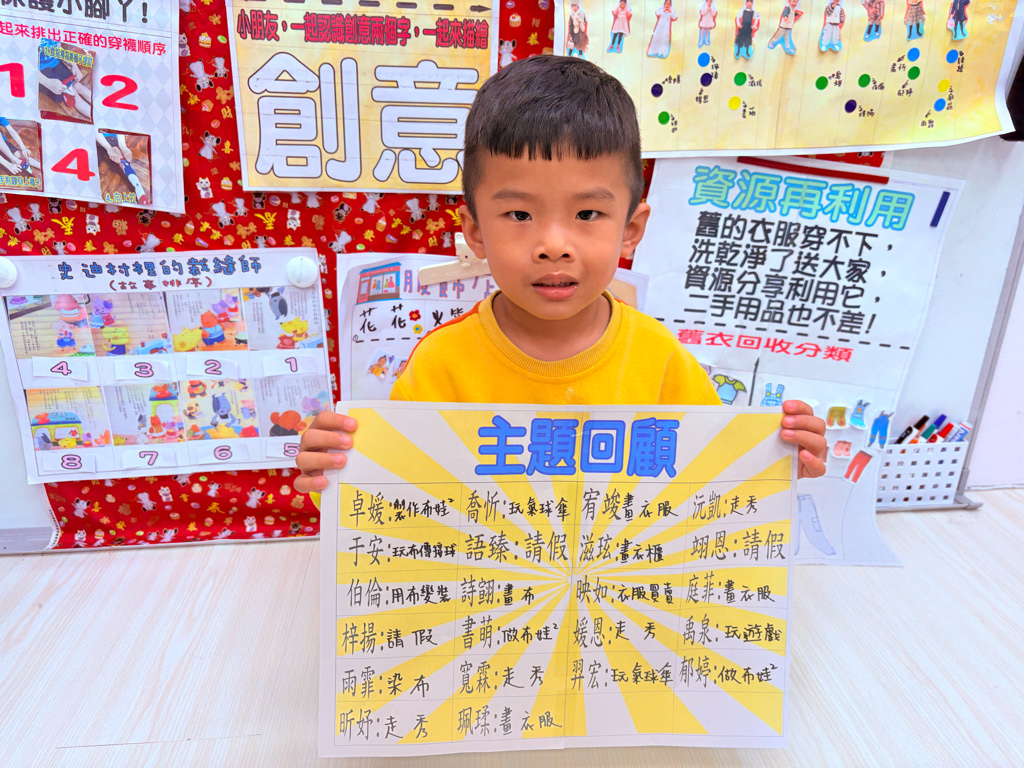 保護小腳丫!
起來排出正確的穿襪順序
1
2
4
小朋友，一起認識創意兩個字，一起來描繪
創意
資源再利用
舊的衣服穿不下，
洗乾淨了送大家，
資源分享利用它，
二手用品也不差!
舊衣回收分類
史迪村裡的裁縫師
(故事排序)
4 3 2 1
8 7 6 5
服飾
花花
主題回顧
卓媛:製作布娃² 喬忻:玩氣球傘 宥竣:畫衣服 沅凱:走秀
于安:玩布傳接球 語臻:請假 滋玹:畫衣櫃 翊恩:請假
伯倫:用布變裝 詩翮:畫布 映如:衣服買賣 庭菲:畫衣服
梓揚:請假 書萌:做布娃² 媛恩:走秀 禹泉:玩遊戲
雨霏:染布 寬霖:走秀 羿宏:玩氣球傘 郁婷:做布娃²
昕妤:走秀 珮瑈:畫衣服